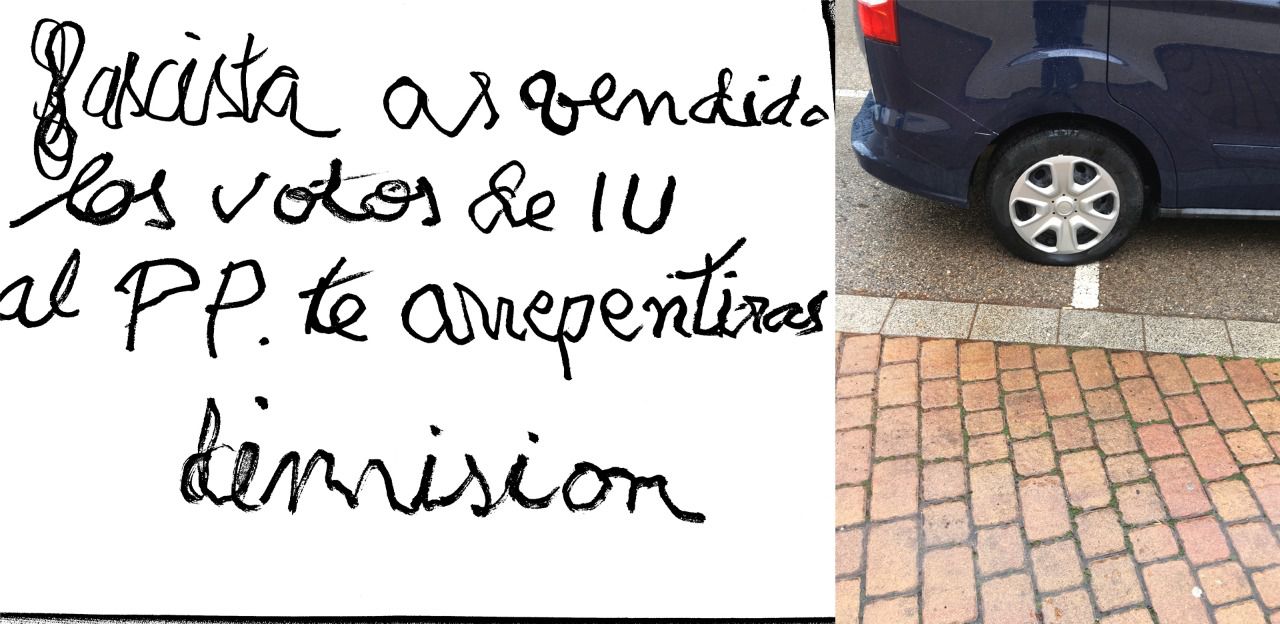 fascista as vendido
los votos de IU
al PP. te arrepentiras
dimision